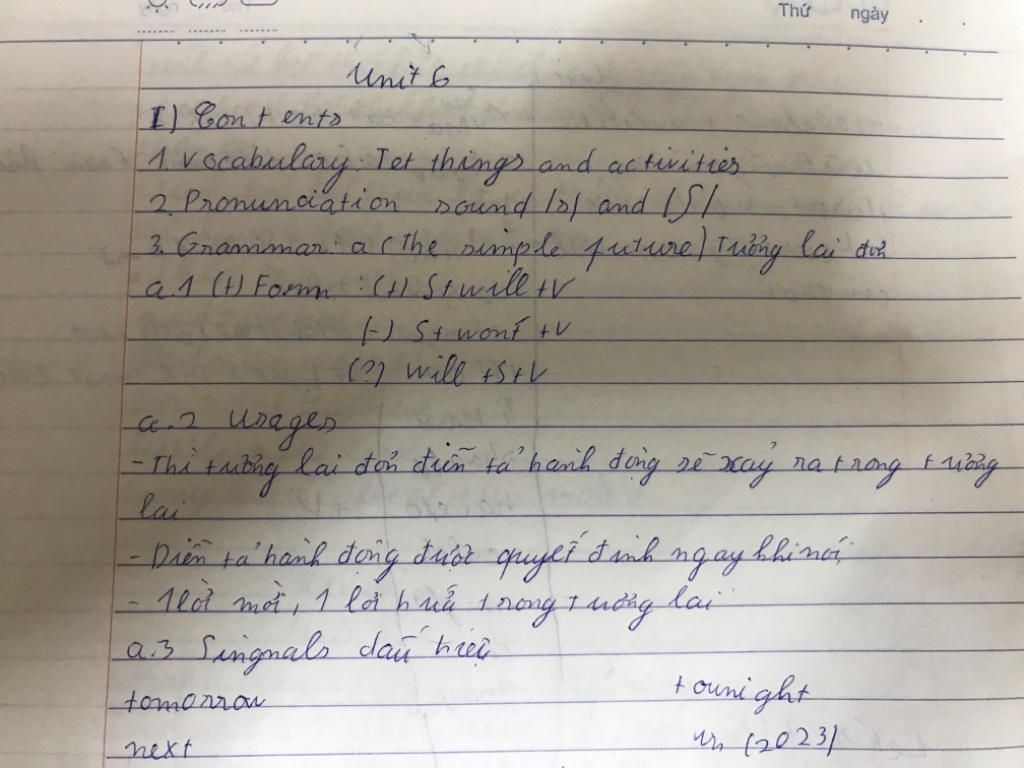 Thứ ngày
Unit 6
I) Contents
1. Vocabulary: Tet things and activities
2. Pronunciation sound /s/ and /ʃ/
3. Grammar: a (The simple future) Tưởng lai đơn
a.1 (+) Form : (+) S+will+V
(-) S+won't +V
(?) Will +S+V
a.2 Usages
- Thì tưởng lai đơn điễn tả hành động sẽ xảy ra trong tưởng
lai
- Diễn tả hành động được quyết định ngay khi nói,
- 1 lời mời, 1 lời hứa trong tương lai
a.3 Singnals dấu hiệu
tomorrow tounight
next in (2023)